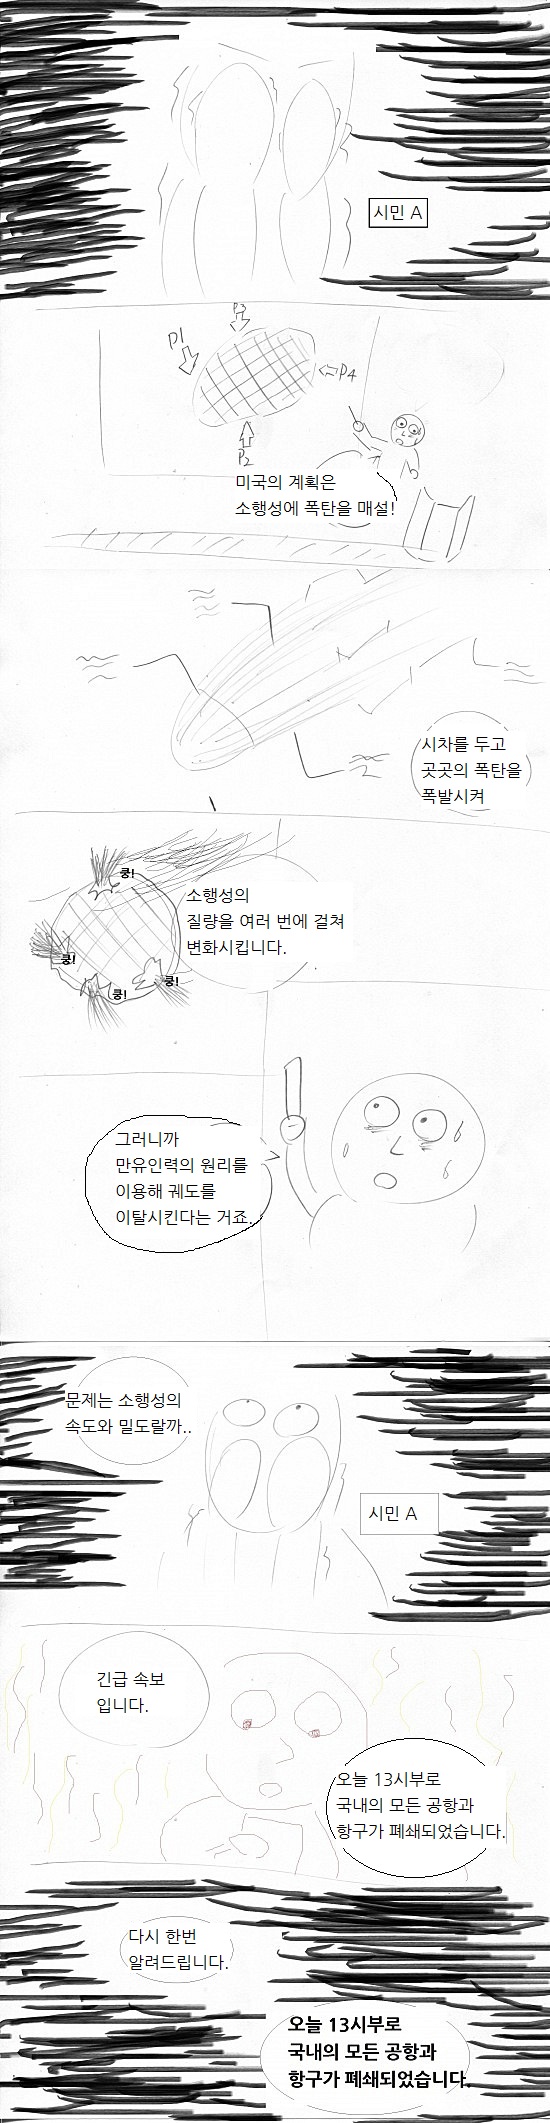 시민 A
P3
P1
P4
P2
미국의 계획은
소행성에 폭탄을 매설!
시차를 두고
곳곳의 폭탄을
폭발시켜
쿵!
쿵!
쿵!
쿵!
소행성의
질량을 여러 번에 걸쳐
변화시킵니다.
그러니까
만유인력의 원리를
이용해 궤도를
이탈시킨다는 거죠.
문제는 소행성의
속도와 밀도랄까..
시민 A
긴급 속보
입니다.
오늘 13시부로
국내의 모든 공항과
항구가 폐쇄되었습니다.
다시 한번
알려드립니다.
오늘 13시부로
국내의 모든 공항과
항구가 폐쇄되었습니다.